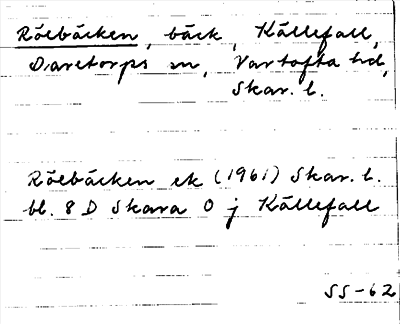 Rölbäcken, bäck, Källefall,
Daretorps sn, Vartofta hd,
Skar. l.
Rölbäcken ek (1961) Skar. l.
bl. 8 D Skara O j Källefall
SS-62